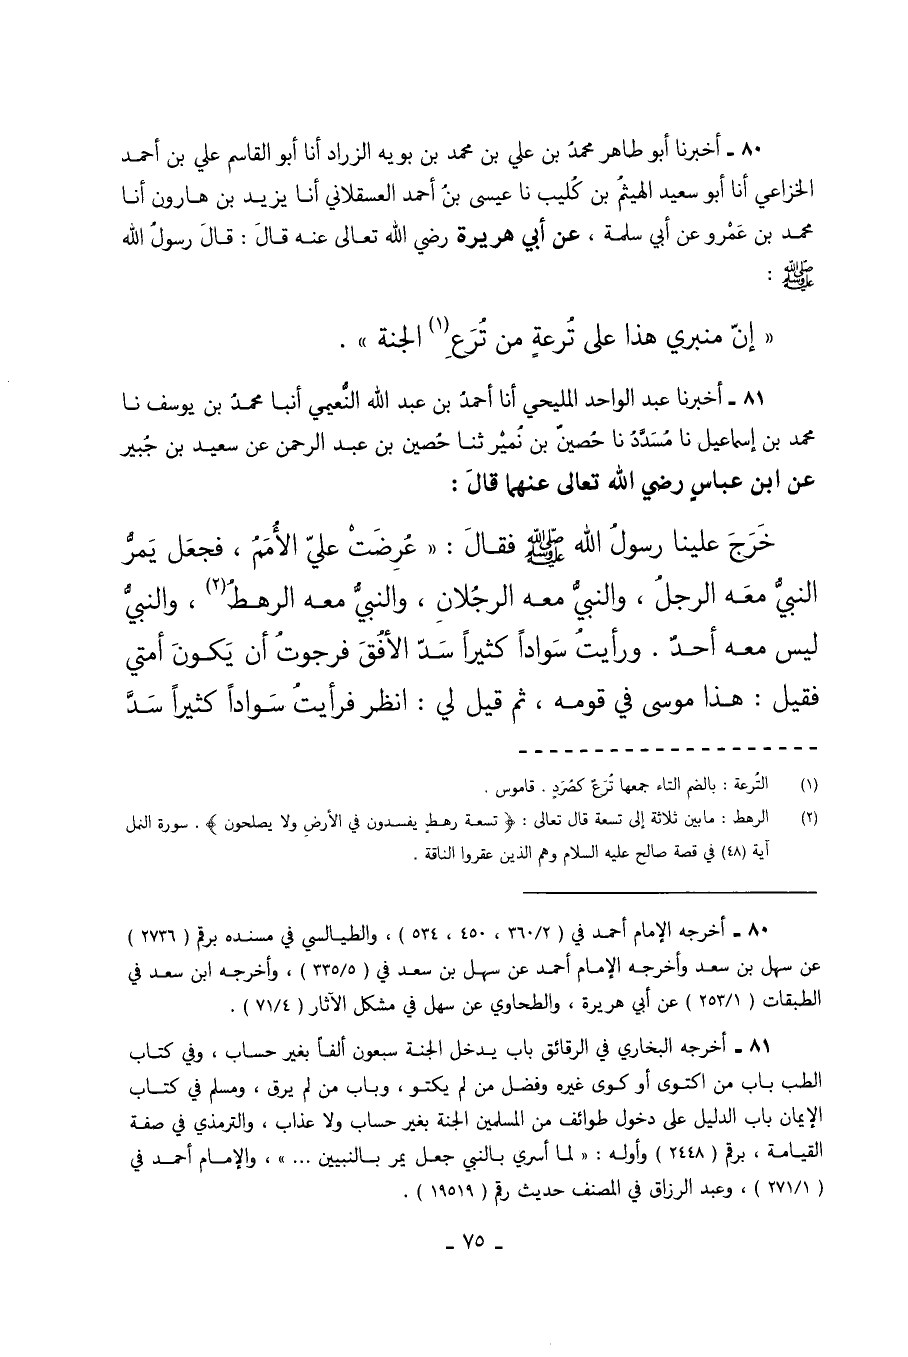 ٨٠ ـ أخبرنا أبو طاهر محمدُ بن علي بن محمد بن بويه الزراد أنا أبو القاسم علي بن أحمد
الخزاعي أنا أبو سعيد الهيثمُ بن كُليب نا عيسى بنُ أحمد العسقلاني أنا يزيد بن هارون أنا
محمد بن عَمْرو عن أبي سلمة ، عن أبي هريرة رضي الله تعالى عنه قالَ : قالَ رسولُ الله
ﷺ :
« إنّ منبري هذا على تُرعةٍ من تُرَعِ(١) الجنة » .
٨١ ـ أخبرنا عبد الواحد المليحي أنا أحمدُ بن عبد الله النُّعيمي أنبا محمدُ بن يوسف نا
محمد بن إسماعيل نا مُسَدَّدُ نا حُصينٌ بن نُميْر ثنا حُصين بن عبد الرحمن عن سعيد بن جُبير
عن ابن عباسٍ رضي الله تعالى عنهما قالَ :
خَرَجَ علينا رسولُ الله ﷺ فقالَ : « عُرِضَتْ عليّ الأُمَمُ ، فجعَل يَمرُّ
النبيُّ معَه الرجلُ ، والنبيُّ معه الرجُلانِ ، والنبيُّ معه الرهطُ(٢) ، والنبيُّ
ليس معه أحدٌ . ورأيتُ سَواداً كثيراً سَدّ الأفُقَ فرجوتُ أن يَكونَ أمتي
فقيل : هذا موسى في قومه ، ثم قيل لي : انظر فرأيتُ سَواداً كثيراً سَدَّ
(١) التُرعة : بالضم التاء جمعها تُرَعٌ كصُرَدٍ . قاموس .
(٢) الرهط : مابين ثلاثة إلى تسعة قال تعالى : ﴿ تسعة رهطٍ يفسدون في الأرضِ ولا يصلحون ﴾ . سورة النمل
آية (٤٨) في قصة صالح عليه السلام وهم الذين عقروا الناقة .
٨٠ ـ أخرجه الإمام أحمد في ( ٣٦٠/٢ ، ٤٥٠ ، ٥٣٤ ) ، والطيالسي في مسنده برقم ( ٢٧٣٦ )
عن سهل بن سعد وأخرجه الإمام أحمد عن سهل بن سعد في ( ٣٣٥/٥ ) ، وأخرجه ابن سعد في
الطبقات ( ٢٥٣/١ ) عن أبي هريرة ، والطحاوي عن سهل في مشكل الآثار ( ٧١/٤ ) .
٨١ ـ أخرجه البخاري في الرقائق باب يدخل الجنة سبعون ألفاً بغير حساب ، وفي كتاب
الطب باب من اكتوى أو كوى غيره وفضل من لم يكتو ، وباب من لم يرق ، ومسلم في كتاب
الإيمان باب الدليل على دخول طوائف من المسلمين الجنة بغير حساب ولا عذاب ، والترمذي في صفة
القيامة ، برقم ( ٢٤٤٨ ) وأوله : « لما أسري بالنبي جعل يمر بالنبيين ... » ، والإمام أحمد في
( ٢٧١/١ ) ، وعبد الرزاق في المصنف حديث رقم ( ١٩٥١٩ ) .
ـ ٧٥ ـ